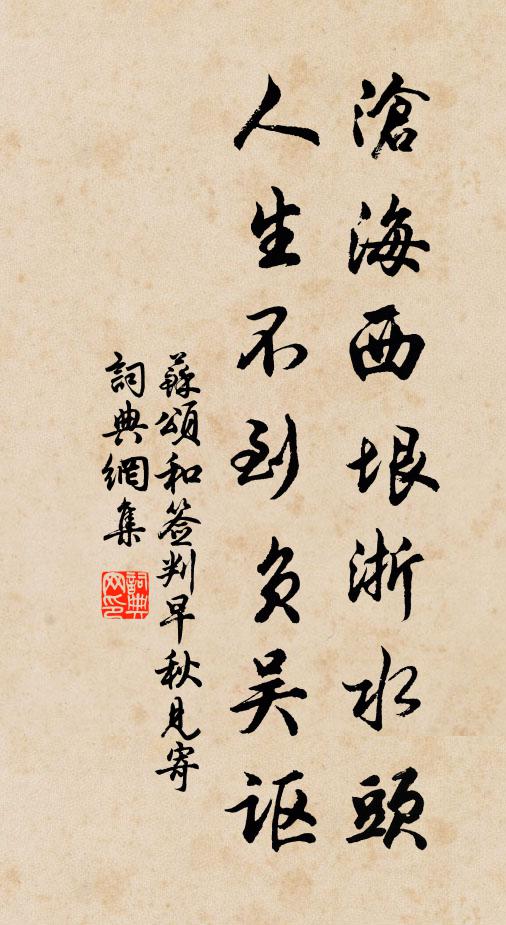 滄海西垠浙水頭
人生不到负吴讴
蘇頌和签判早秋見寄
詞典網集
詞典网印